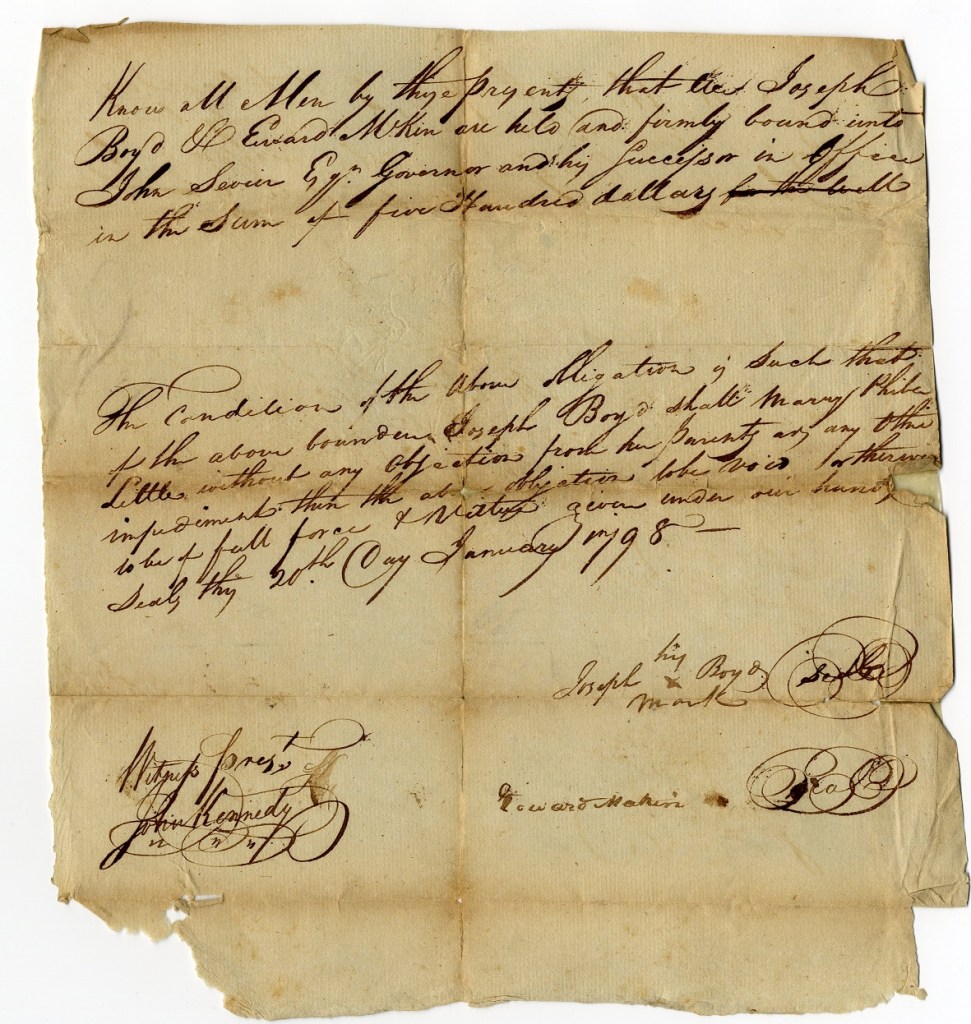 Know all Men by these presents, that We Joseph
Boyd & Edward McKin are held and firmly bound unto
John Sevier Esqr. Governor and his Successor in Office
in the Sum of five Hundred dollars for the well
The Condition of the above obligation is Such that
if the above bounden Joseph Boyd shall Marry Phibe
Little without any objection from her Parents or any other
impediment then the above obligation to be void or otherwise
to be of full force & given under our hands
Seals this 20th Day January 1798 —
Joseph his Boyd Seal
x
mark
Witness prest.
John Kennedy
Edward Makin Seal